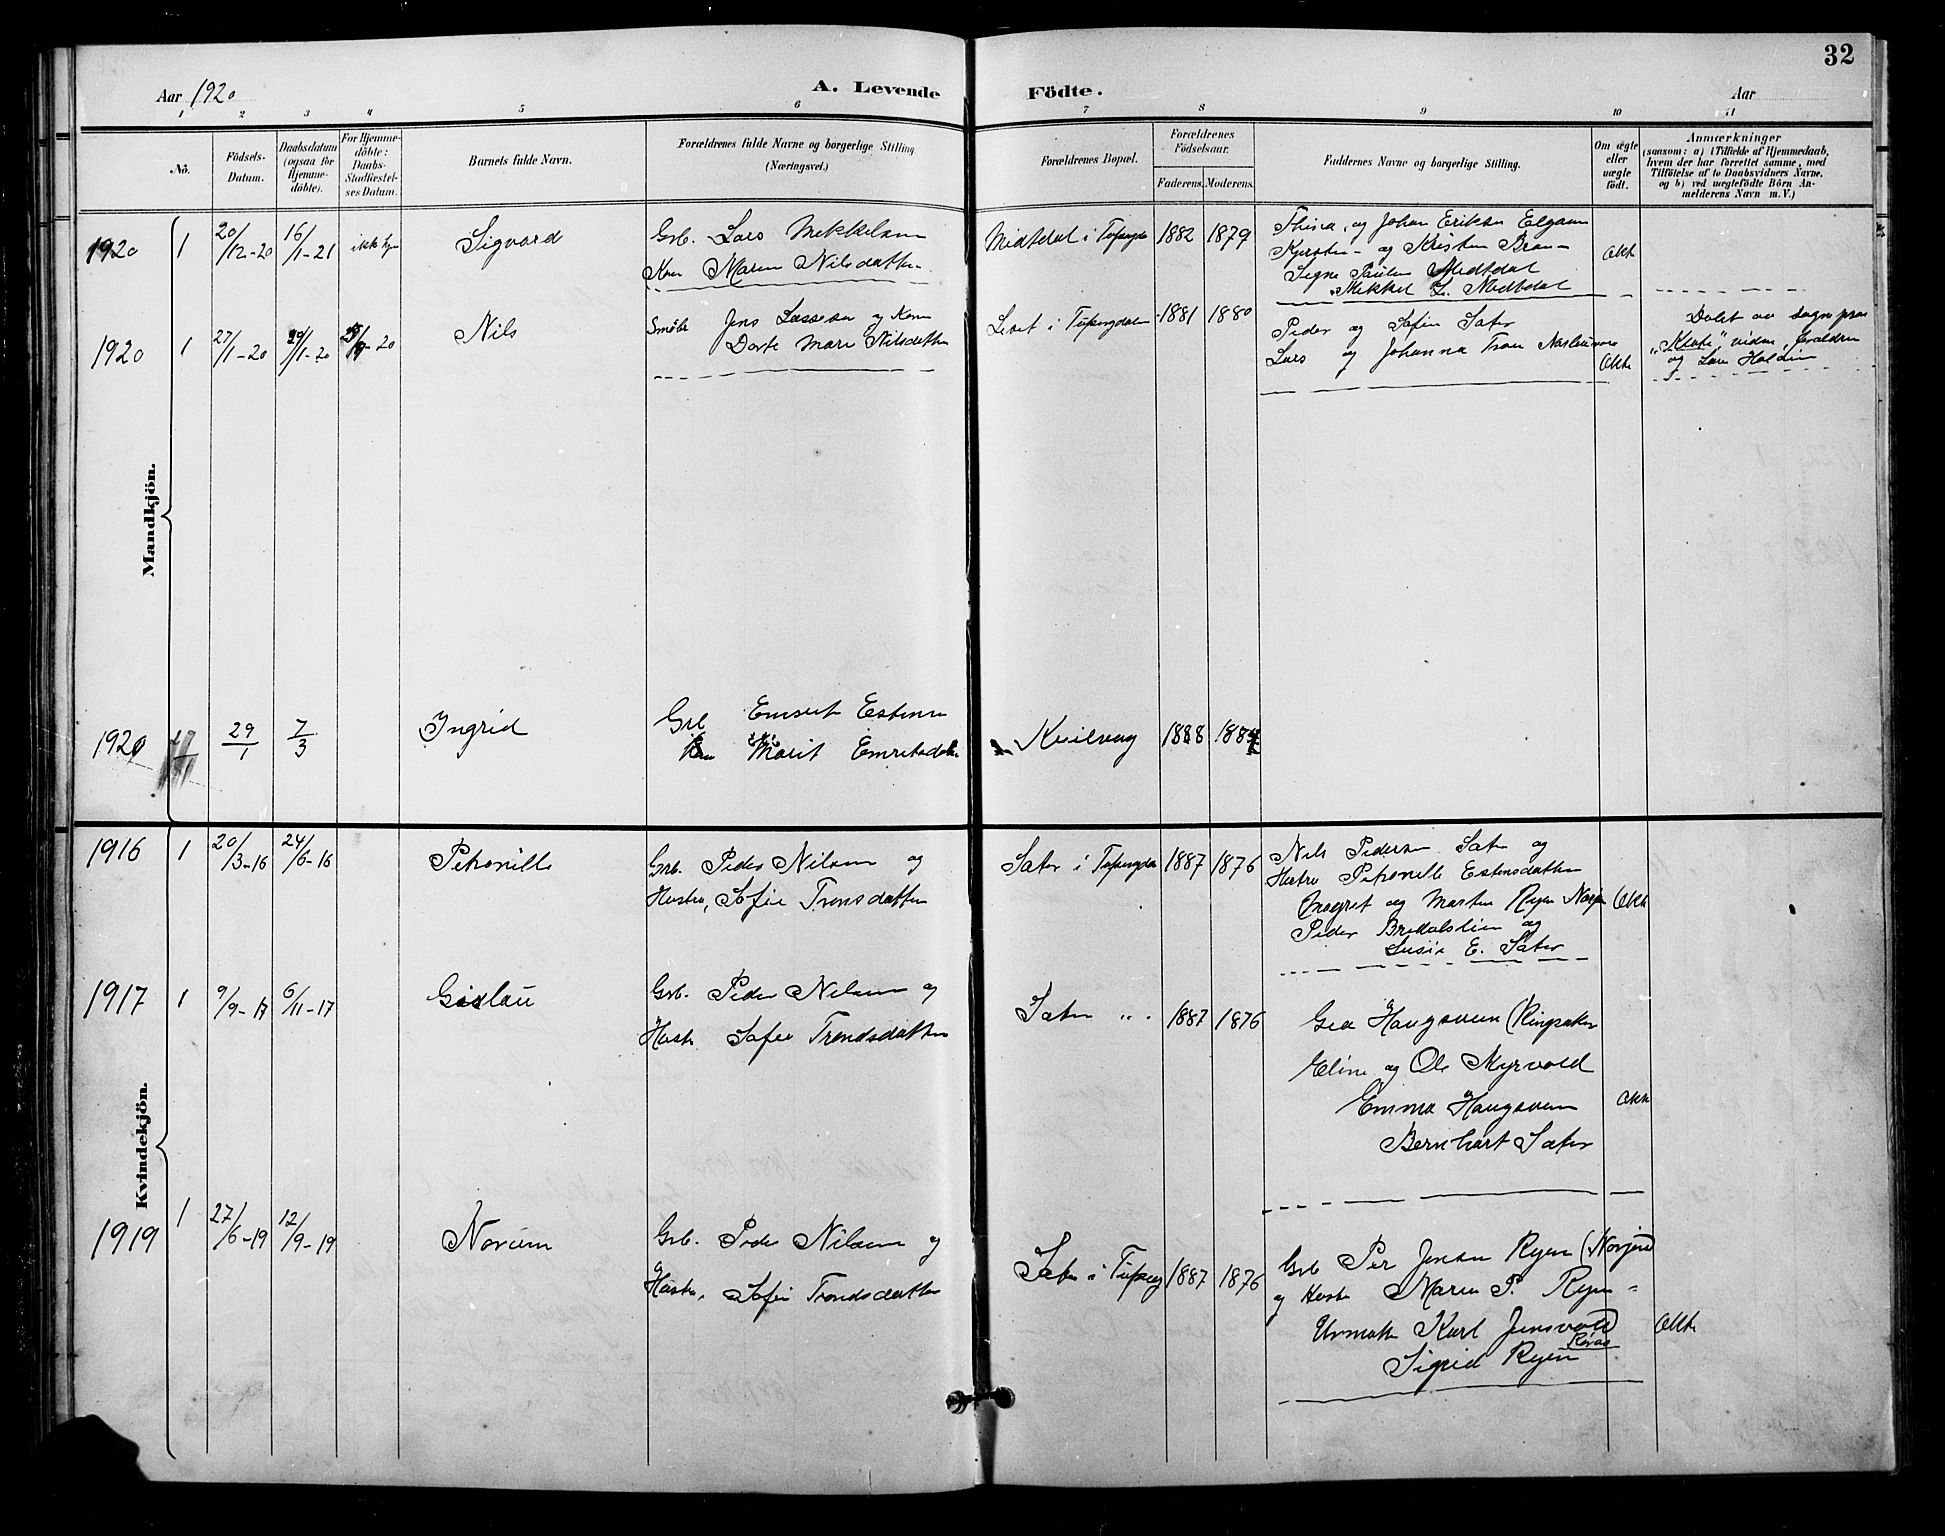 32
Aar 1920
A. Levende Födte.
Aar
1 2 3 4 5 6 7 8 9 10 11
No.
Födsels-
Datum.
Daabsdatum
(ogsaa for
Hjemme-
döbte).
For Hjemme-
döbte:
Daabs-
Stadfæstel-
ses Datum.
Barnets fulde Navn.
Forældrenes fulde Navne og borgerlige Stilling
(Næringsvei.)
Forældrenes Bopæl.
Forældrenes
Födselsaar.
Faderens. Moderens.
Faddernes Navne og borgerlige Stilling.
Om ægte
eller
uægte
födt.
Anmærkninger
(saasom: a) i Tilfælde af Hjemmedaab,
hvem der har forrettet samme, med
Tilföielse af to Daabsvidners Navne,
og b) ved uægtefödte Börn An-
melderens Navn m. V.)
Mandkjön.
1920 1 20/12-20 16/1-21 ikke hjm Sigvard
Grb. Lars Mekkelsen
Kone Maren Nilsdatter
Midtdal i Tufsingda 1882 1879
og Johan Eriksen Elgaaen
Kjersten og Kristen Bran
Signe Paulsen Midtdal
Mekkel L. Midtdal
Ekte
1920 1 27/1-20 29/1-20 Nils
Småbr Jens Lassesen og Kone
Dorte Mari Nilsdatter
i Tufsingdalen 1881 1880
Peder og Sofie Sater
Lars og Johanna Tron
Ekte
Døbt av sogneprest
"Klokk" viden, foreldrene
og Lars Holden
1920 29/1 7/3 Ingrid
Grb Emret Estensen
Kone Marit Emretsdatter
Kvilvang 1888 1884
Kvindekjön.
1916 1 20/3-16 24/6-16 Petronille
Grb. Peder Nilsen og
Hustru, Sofie Tronsdatter
Sater i Tufsingda 1887 1876
Nils Pedersen Sater og
Hustru Petronelle Estensdatter
Magret og Marten Ryen
Peder Bredalslien og
E. Sater
Ekte
1917 1 9/9-17 6/11-17 Gislau
Grb. Peder Nilsen og
Hustr Sofie Trondsdatter
Sater " 1887 1876
Gea Haugsveen (Ringsaker
Eline og Ole Myrvold
Emma Haugsveen
Bernhart Sater
Ekte
1919 1 27/6-19 12/9-19 Norum
Grb. Peder Nilsen og
Hustru, Sofie Trondsdatter
Sater i Tufsing 1887 1876
Grb Per Jensen Ryen
og Hustr Maren P. Ryen
Urmaker Karl Jensvold
Røros
Sigrid Ryen
Ekte